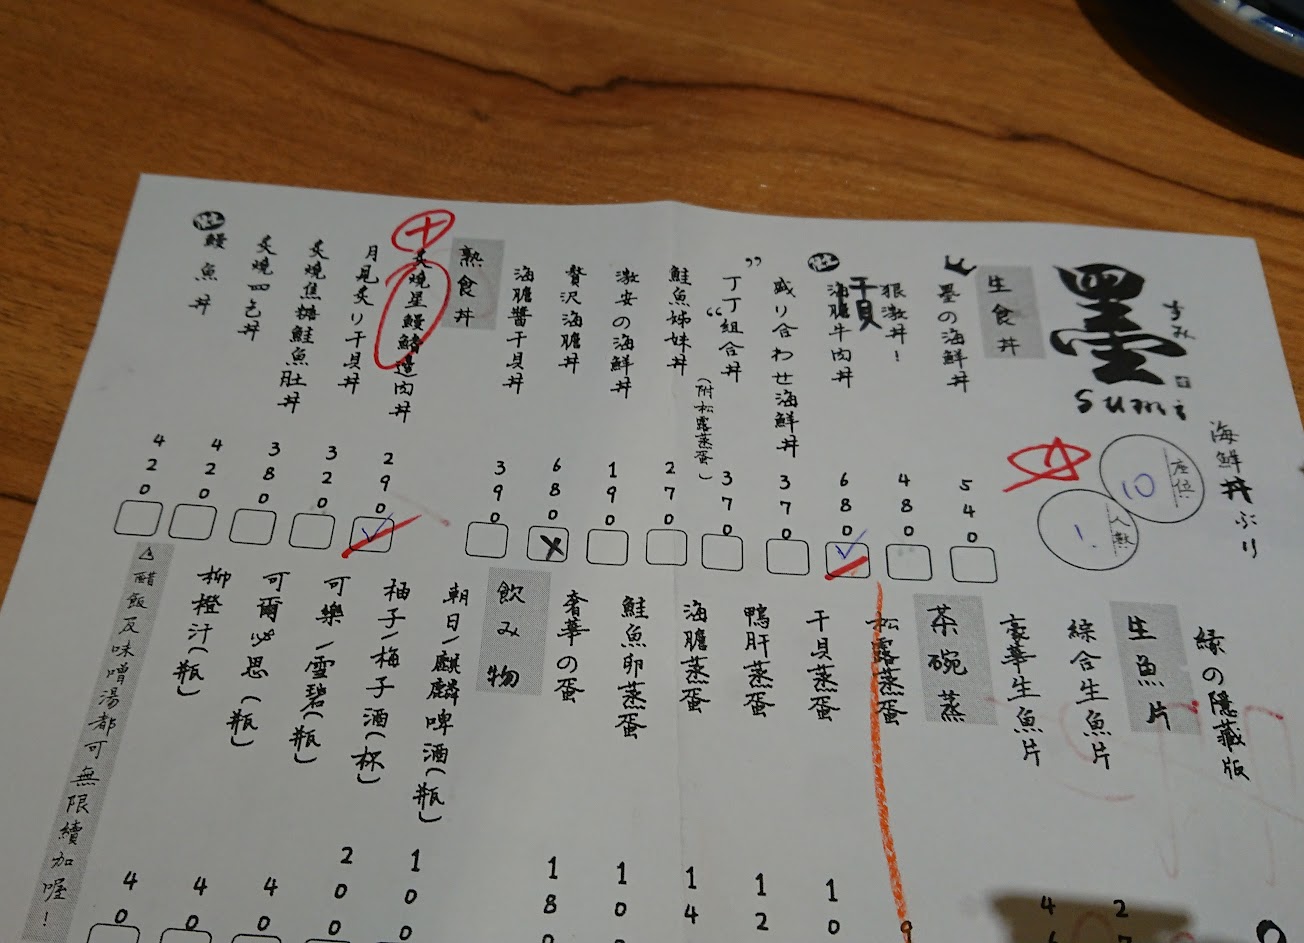 墨
すみ
sumi
海鮮丼ぶり
座位
10
人數
1
生食丼
墨の海鮮丼
540
狠激丼！
480
干貝
海膽牛肉丼
680
盛り合わせ海鮮丼
370
”丁丁組合丼“
（附松露蒸蛋）
370
鮭魚姊妹丼
270
激安の海鮮丼
190
贅沢海膽丼
680
海膽醬干貝丼
390
熟食丼
炙燒星鰻鰭邊肉丼
290
月見炙り干貝丼
320
炙燒焦糖鮭魚肚丼
380
炙燒四色丼
420
鰻魚丼
420
緣の隱藏版
生魚片
綜合生魚片
豪華生魚片
茶碗蒸
松露蒸蛋
干貝蒸蛋
鴨肝蒸蛋
海膽蒸蛋
鮭魚卵蒸蛋
奢華の蛋
飲み物
朝日/麒麟啤酒(瓶)
柚子/梅子酒(杯)
可樂/雪碧(瓶)
可爾必思(瓶)
柳橙汁(瓶)
醋飯及味噌湯都可無限續加喔！